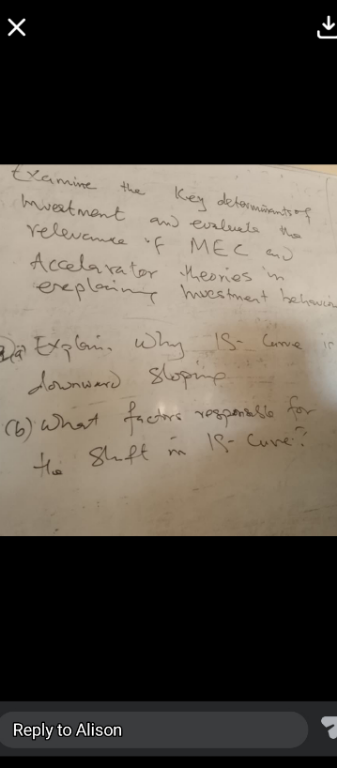 Examine the Key determinants of
Investment and evaluate the
relevance of MEC and
Accelarator theories in
exeplaining Investment behaviou
2)a) Explain. Why IS- Curve is
downward Sloping
(b) What factors responsible for
the Shift in IS- Curve?
Reply to Alison